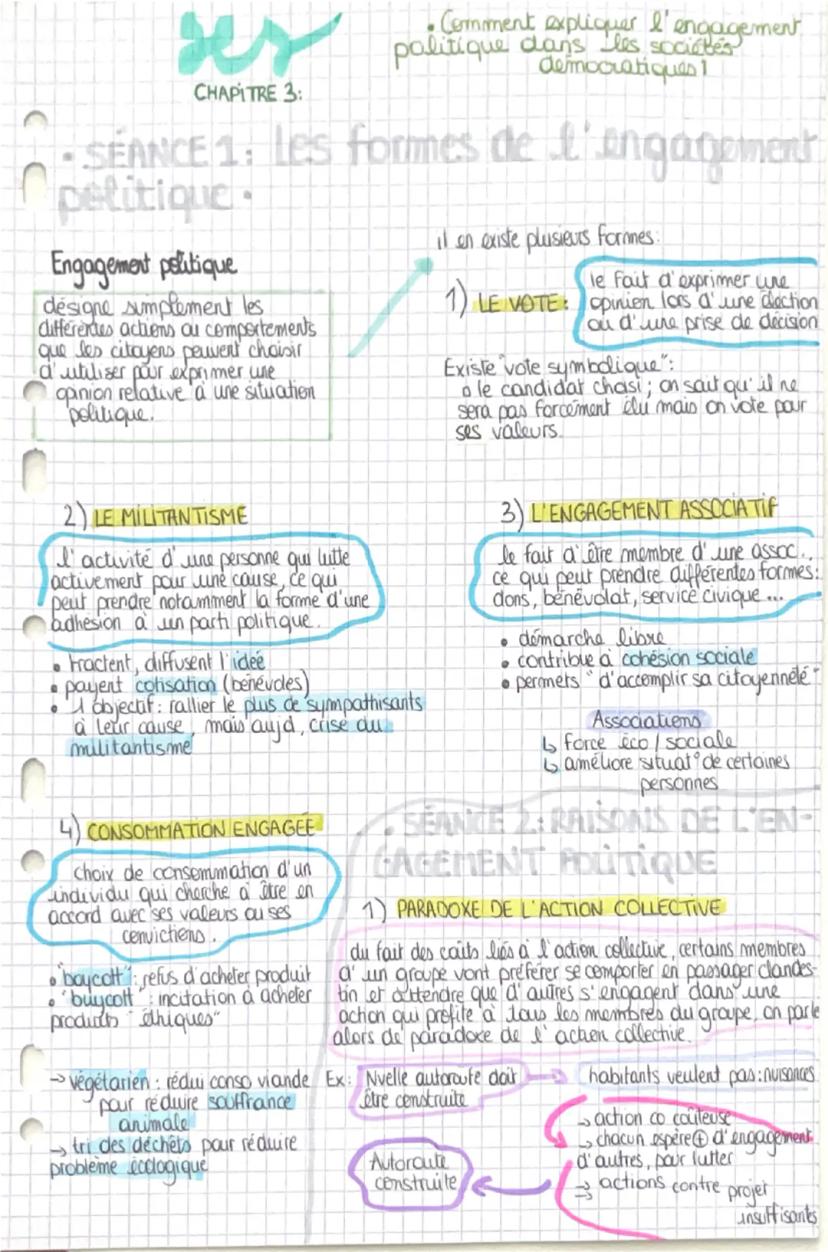 ses
CHAPITRE 3:
• Comment expliquer l'engagement
politique dans les sociétés
démocratiques ?
• SÉANCE 1: Les formes de l'engagement
politique •
Engagement politique
désigne simplement les
différentes actions ou comportements
que les citoyens peuvent choisir
d'utiliser pour exprimer une
opinion relative à une situation
politique.
il en existe plusieurs formes:
1) LE VOTE:
le fait d'exprimer une
opinion lors d'une élection
ou d'une prise de décision
Existe "vote symbolique":
o le candidat choisi; on sait qu'il ne
sera pas forcément élu mais on vote pour
ses valeurs.
2) LE MILITANTISME
l'activité d'une personne qui lutte
activement pour une cause, ce qui
peut prendre notamment la forme d'une
adhésion à un parti politique.
• tractent, diffusent l'idée
• payent cotisation (bénévoles)
• 1 objectif: rallier le plus de sympathisants
à leur cause, mais aujd, crise du
militantisme
3) L'ENGAGEMENT ASSOCIATIF
le fait d'être membre d'une assoc...
ce qui peut prendre différentes formes:
dons, bénévolat, service civique...
• démarche libre
• contribue à cohésion sociale
• permets "d'accomplir sa citoyenneté"
Associations
↳ force éco/sociale
↳ améliore situat° de certaines
personnes
4) CONSOMMATION ENGAGÉE
choix de consommation d'un
individu qui cherche à être en
accord avec ses valeurs ou ses
convictions.
• "boycott": refus d'acheter produit
• "buycott": incitation à acheter
produits "éthiques"
→ végétarien: rédui conso viande
pour réduire souffrance
animale
→ tri des déchets pour réduire
problème écologique
• SÉANCE 2: RAISONS DE L'EN-
GAGEMENT POLITIQUE
1) PARADOXE DE L'ACTION COLLECTIVE
du fait des coûts liés à l'action collective, certains membres
d'un groupe vont préférer se comporter en passager clandes-
tin et attendre que d'autres s'engagent dans une
action qui profite à tous les membres du groupe, on parle
alors de paradoxe de l'action collective.
Ex: Nvelle autoroute doit
être construite
→ habitants veulent pas: nuisances
→ action co coûteuse
→ chacun espère ⊕ d'engagement
d'autres, pour lutter
→ actions contre projet
insuffisants
Autoroute
construite